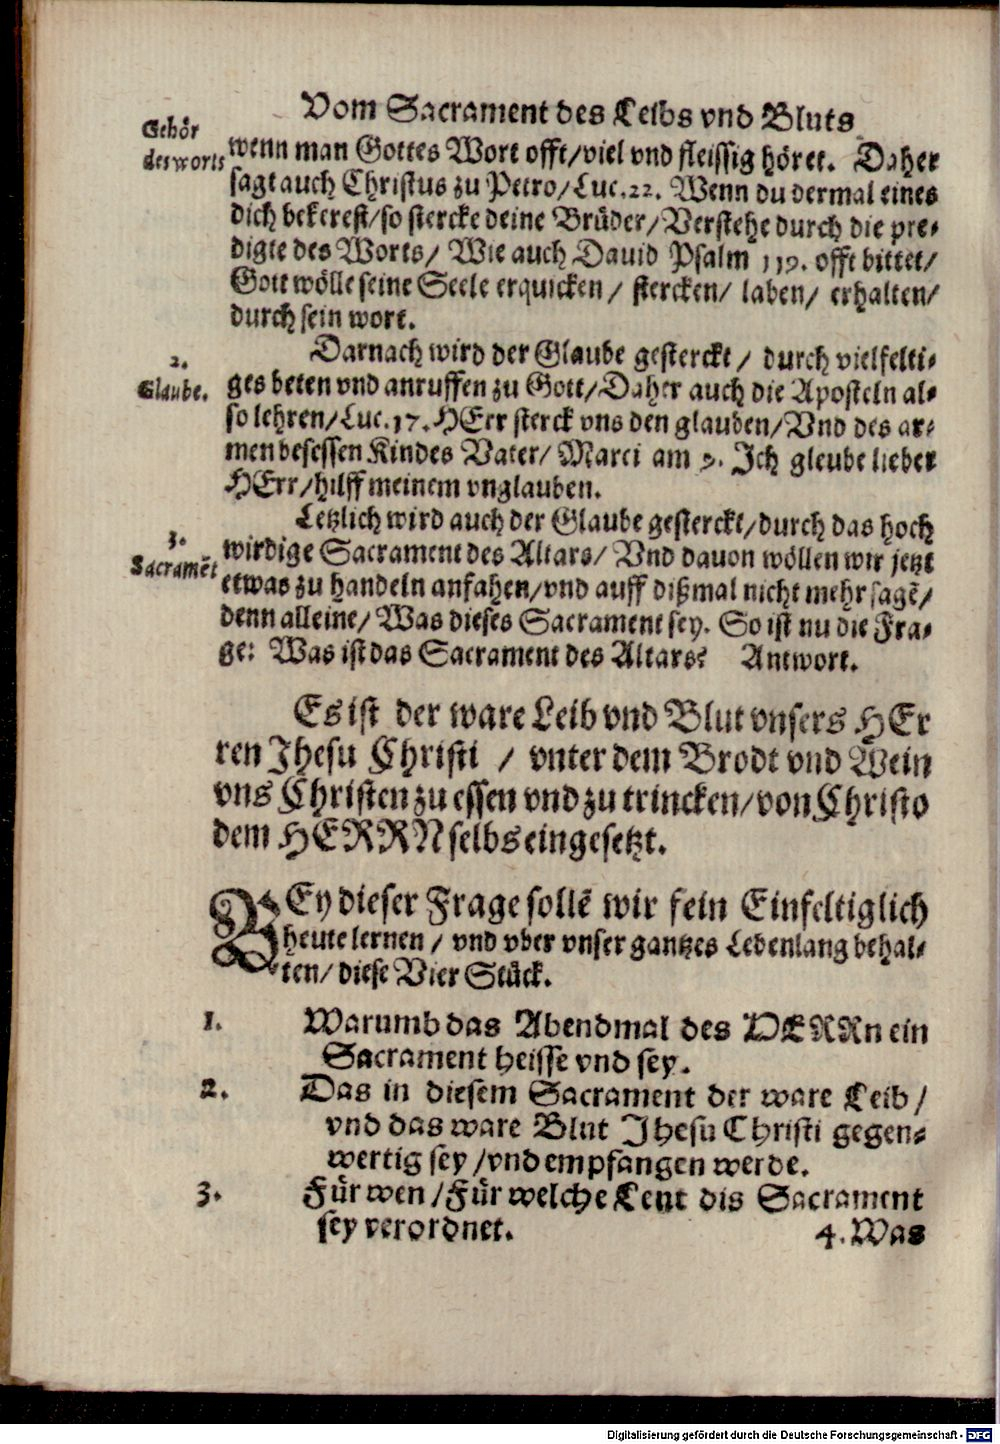 Vom Sacrament des Leibs vnd Bluts
Gehör
des worts
wenn man Gottes Wort offt/viel vnd fleissig höret. Daher
sagt auch Christus zu Petro/Luc.22. Wenn du dermal eines
dich bekerest/so stercke deine Brüder/Verstehe durch die pre-
digte des Worts/ Wie auch Dauid Psalm 119. offt bittet/
Gott wölle seine Seele erquicken/ stercken/ laben/ erhalten/
durch sein wort.
2.
Glaube.
Darnach wird der Glaube gesterckt/ durch vielfelti-
ges beten vnd anruffen zu Gott/Daher auch die Aposteln al-
so lehren/Luc.17.HErr sterck vns den glauben/Vnd des ar-
men besessen Kindes Vater/ Marci am 9. Ich gleube lieber
HErr/hilff meinem vnglauben.
3.
Sacramēt
Letzlich wird auch der Glaube gesterckt/durch das hoch
wirdige Sacrament des Altars/ Vnd dauon wöllen wir jetzt
etwas zu handeln anfahen/vnd auff dißmal nicht mehr sagē/
denn alleine/ Was dieses Sacrament sey. So ist nu die Fra-
ge: Was ist das Sacrament des Altars? Antwort.
Es ist der ware Leib vnd Blut vnsers HEr
ren Jhesu Christi / vnter dem Brodt vnd Wein
vns Christen zu essen vnd zu trincken/von Christo
dem HERRN selbs eingesetzt.
BEy dieser Frage sollē wir fein Einfeltiglich
heute lernen/ vnd vber vnser gantzes Lebenlang behal-
ten/ diese Vier Stück.
1. Warumb das Abendmal des HERRn ein
Sacrament heisse vnd sey.
2. Das in diesem Sacrament der ware Leib/
vnd das ware Blut Jhesu Christi gegen-
wertig sey/vnd empfangen werde.
3. Für wen/Für welche Leut dis Sacrament
sey verordnet.
4. Was
Digitalisierung gefördert durch die Deutsche Forschungsgemeinschaft - DFG